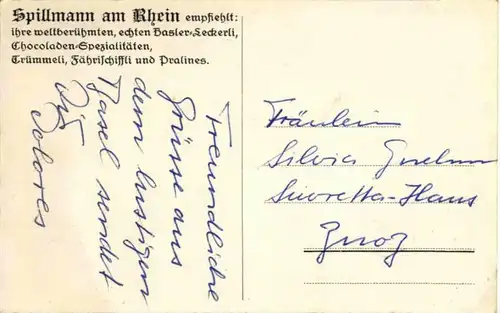 Spillmann am Rhein empfiehlt:
ihre weltberühmten, echten Basler-Leckerli,
Chocoladen-Spezialitäten,
Trümmeli, Fährischiffli und Pralines.
Freundliche
Grüsse aus
dem lustigen
Basel sendet
Dolores
Fräulein
Silvia
Suvretta-Haus